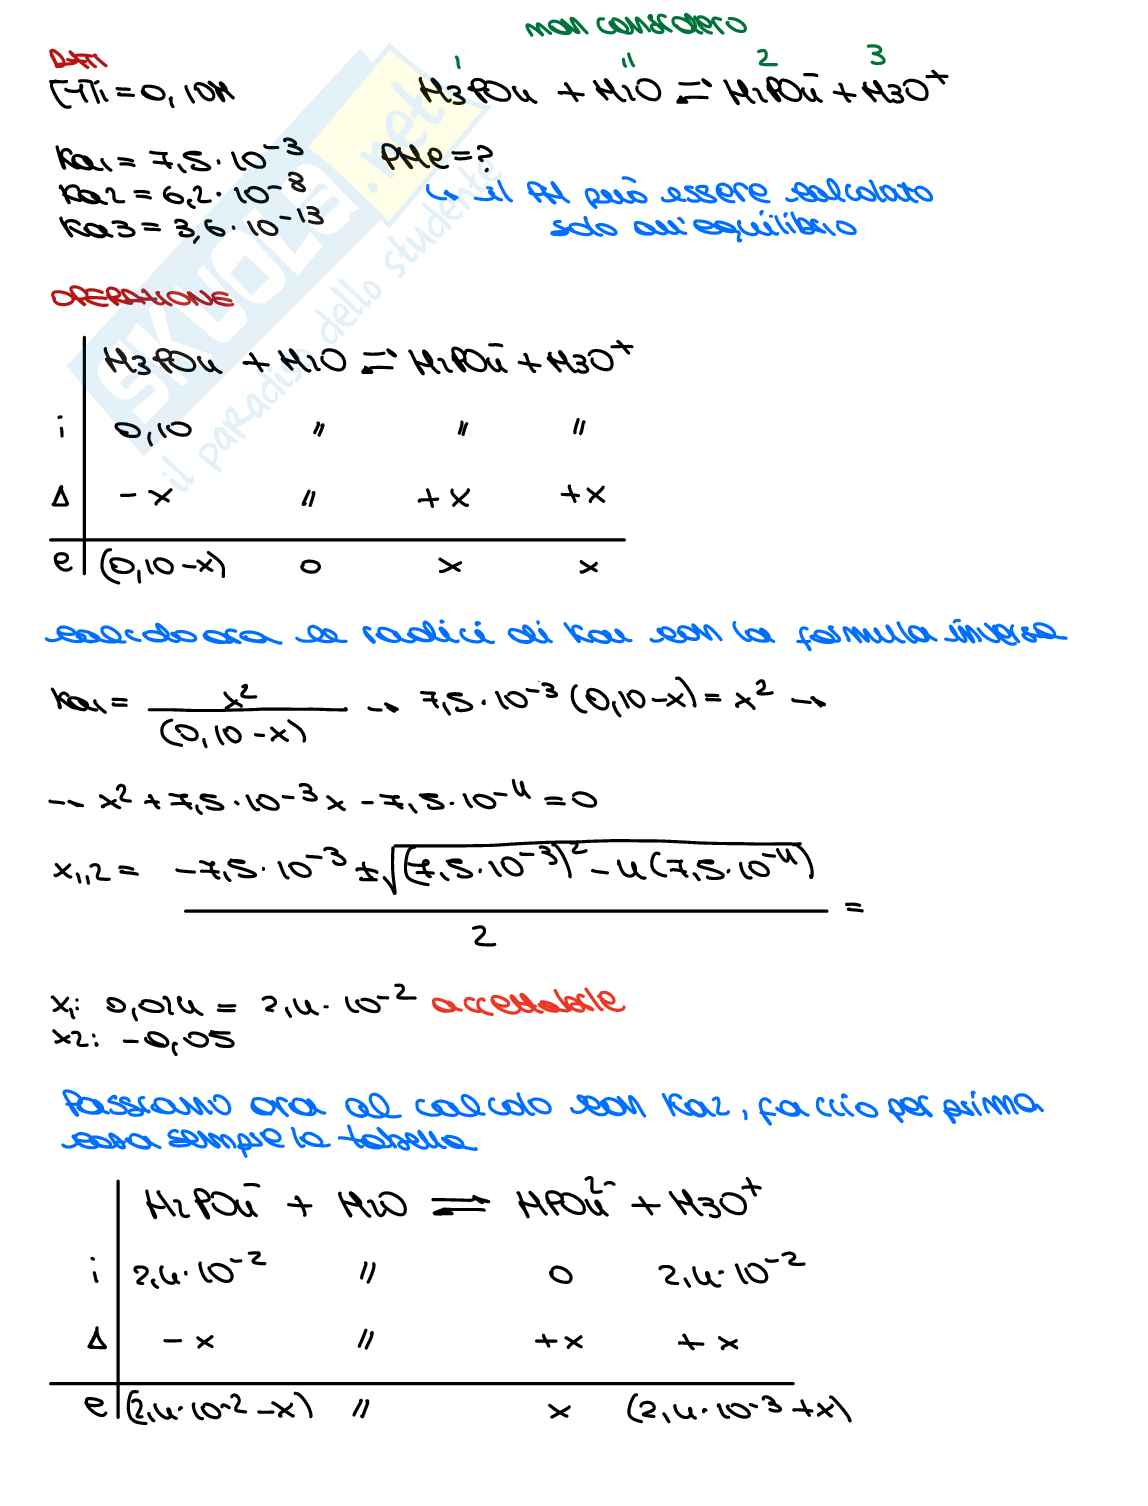 non considero
DATI
1 " 2 3
[H]i = 0,10M H3PO4 + H2O ⇌ H2PO4⁻ + H3O⁺
Ka1 = 7,5·10⁻³ PHe = ?
Ka2 = 6,2·10⁻⁸ ↳ il PH può essere calcolato
Ka3 = 3,6·10⁻¹³ solo all'equilibrio
OPERAZIONE
H3PO4 + H2O ⇌ H2PO4⁻ + H3O⁺
i 0,10 " " "
Δ -x " +x +x
e (0,10-x) 0 x x
calcolo ora le radici di Ka1 con la formula inversa
Ka1 = x² / (0,10-x) → 7,5·10⁻³ (0,10-x) = x² →
→ x² + 7,5·10⁻³x - 7,5·10⁻⁴ = 0
x1,2 = -7,5·10⁻³ ± √((7,5·10⁻³)² - 4(7,5·10⁻⁴)) / 2 =
x1: 0,024 = 2,4·10⁻² accettabile
x2: -0,05
Passiamo ora al calcolo con Ka2, faccio per prima
cosa sempre la tabella
H2PO4⁻ + H2O ⇌ HPO4²⁻ + H3O⁺
i 2,4·10⁻² " 0 2,4·10⁻²
Δ -x " +x +x
e (2,4·10⁻²-x) " x (2,4·10⁻³+x)
SKUOLA.net
il paradiso dello studente